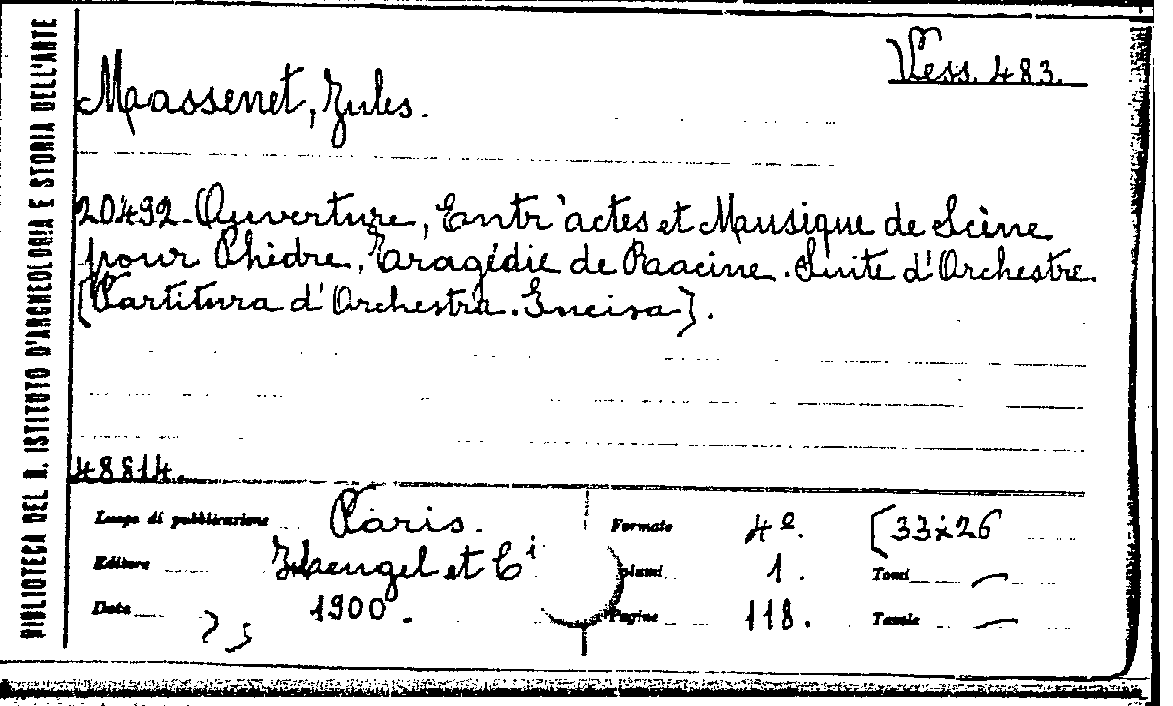 BIBLIOTECA DEL R. ISTITUTO D'ARCHEOLOGIA E STORIA DELL'ARTE
Vess. 483.
Massenet, Jules.
20492-Ouverture, Entr'actes et Musique de Scène
pour Phèdre, Tragédie de Racine. Suite d'Orchestre.
[Partitura d'Orchestra. Incisa].
48814.
Luogo di pubblicazione Paris. Formato 4º. [33x26
Editore Heugel et Cⁱ Volumi 1. Tomi —
Data 1900. Pagine 118. Tavole —